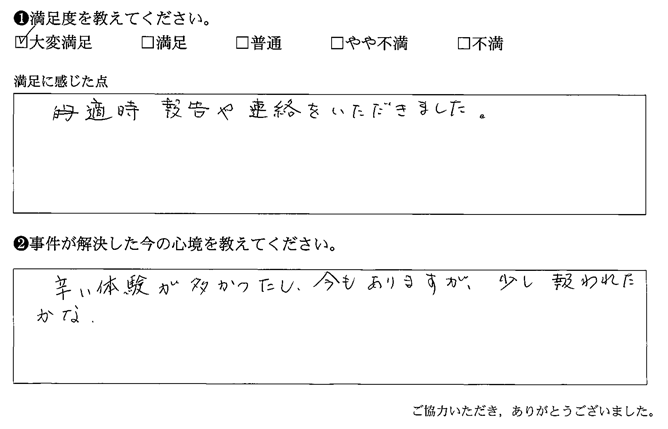 ❶満足度を教えてください。
☑大変満足 □満足 □普通 □やや不満 □不満
満足に感じた点
適時 報告や連絡をいただきました。
❷事件が解決した今の心境を教えてください。
辛い体験が多かったし、今もありますが、少し報われた
かな.
ご協力いただき，ありがとうございました。